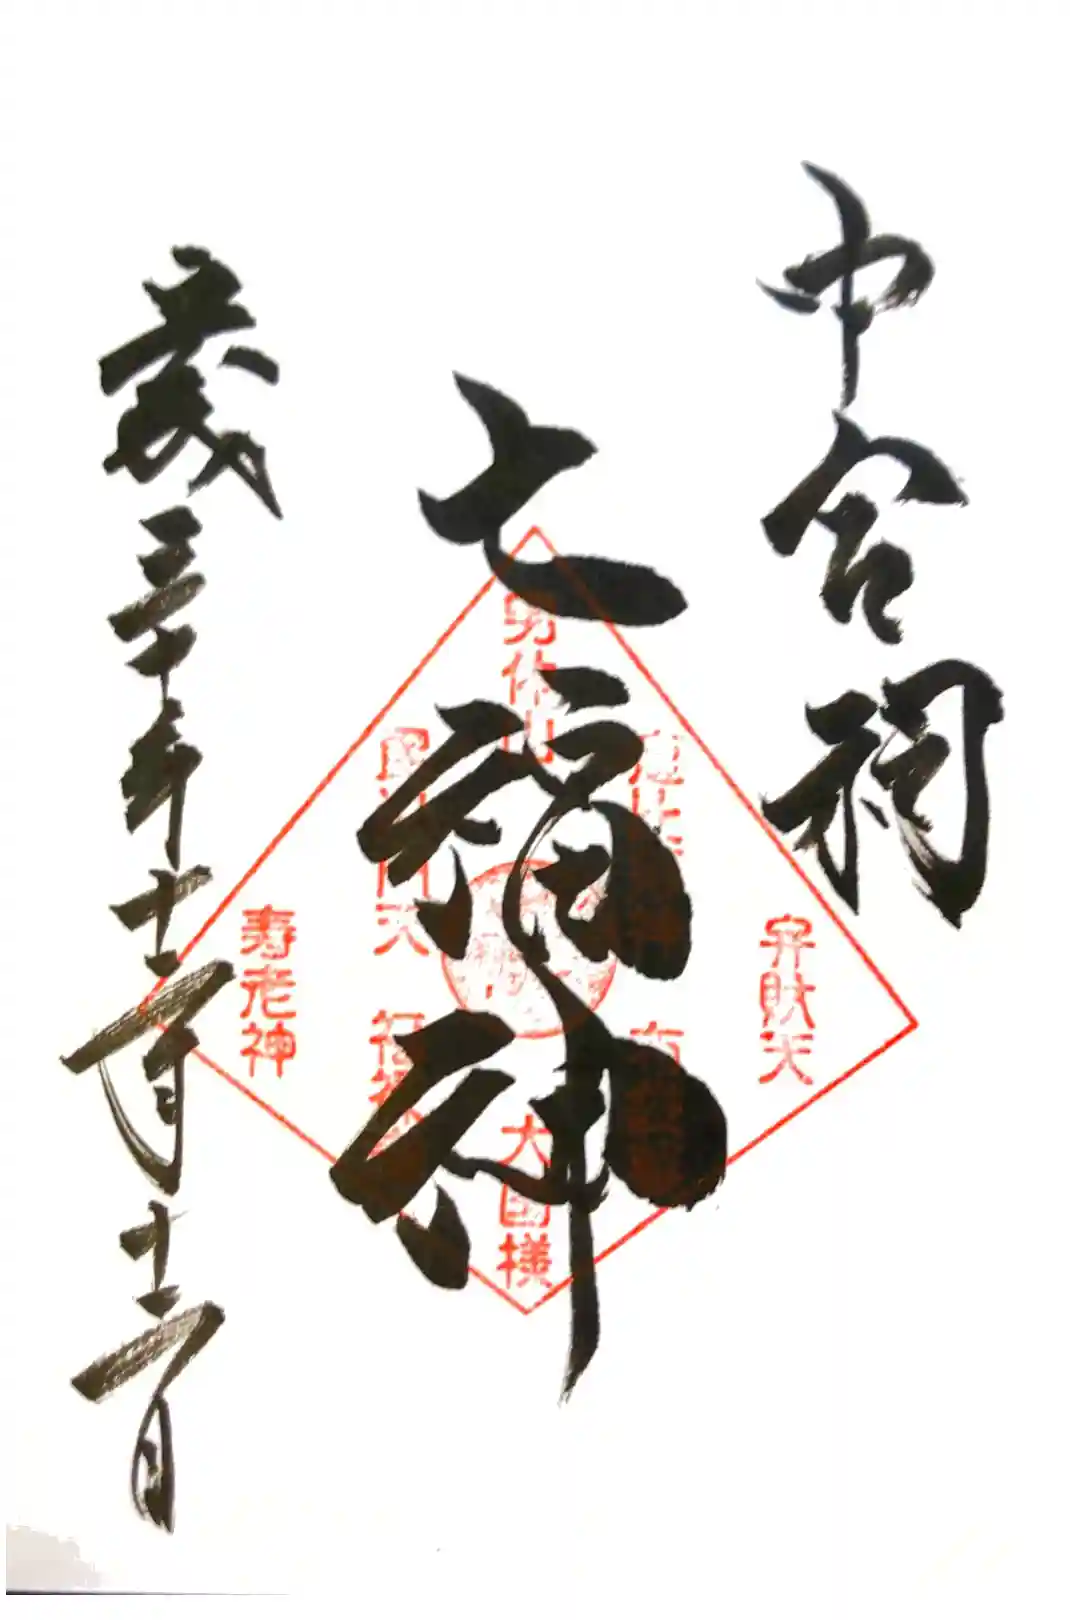 中宮祠
七福神
歳三十年十二月十二日
男体山
恵比寿
毘沙門天
弁財天
寿老神
大国様